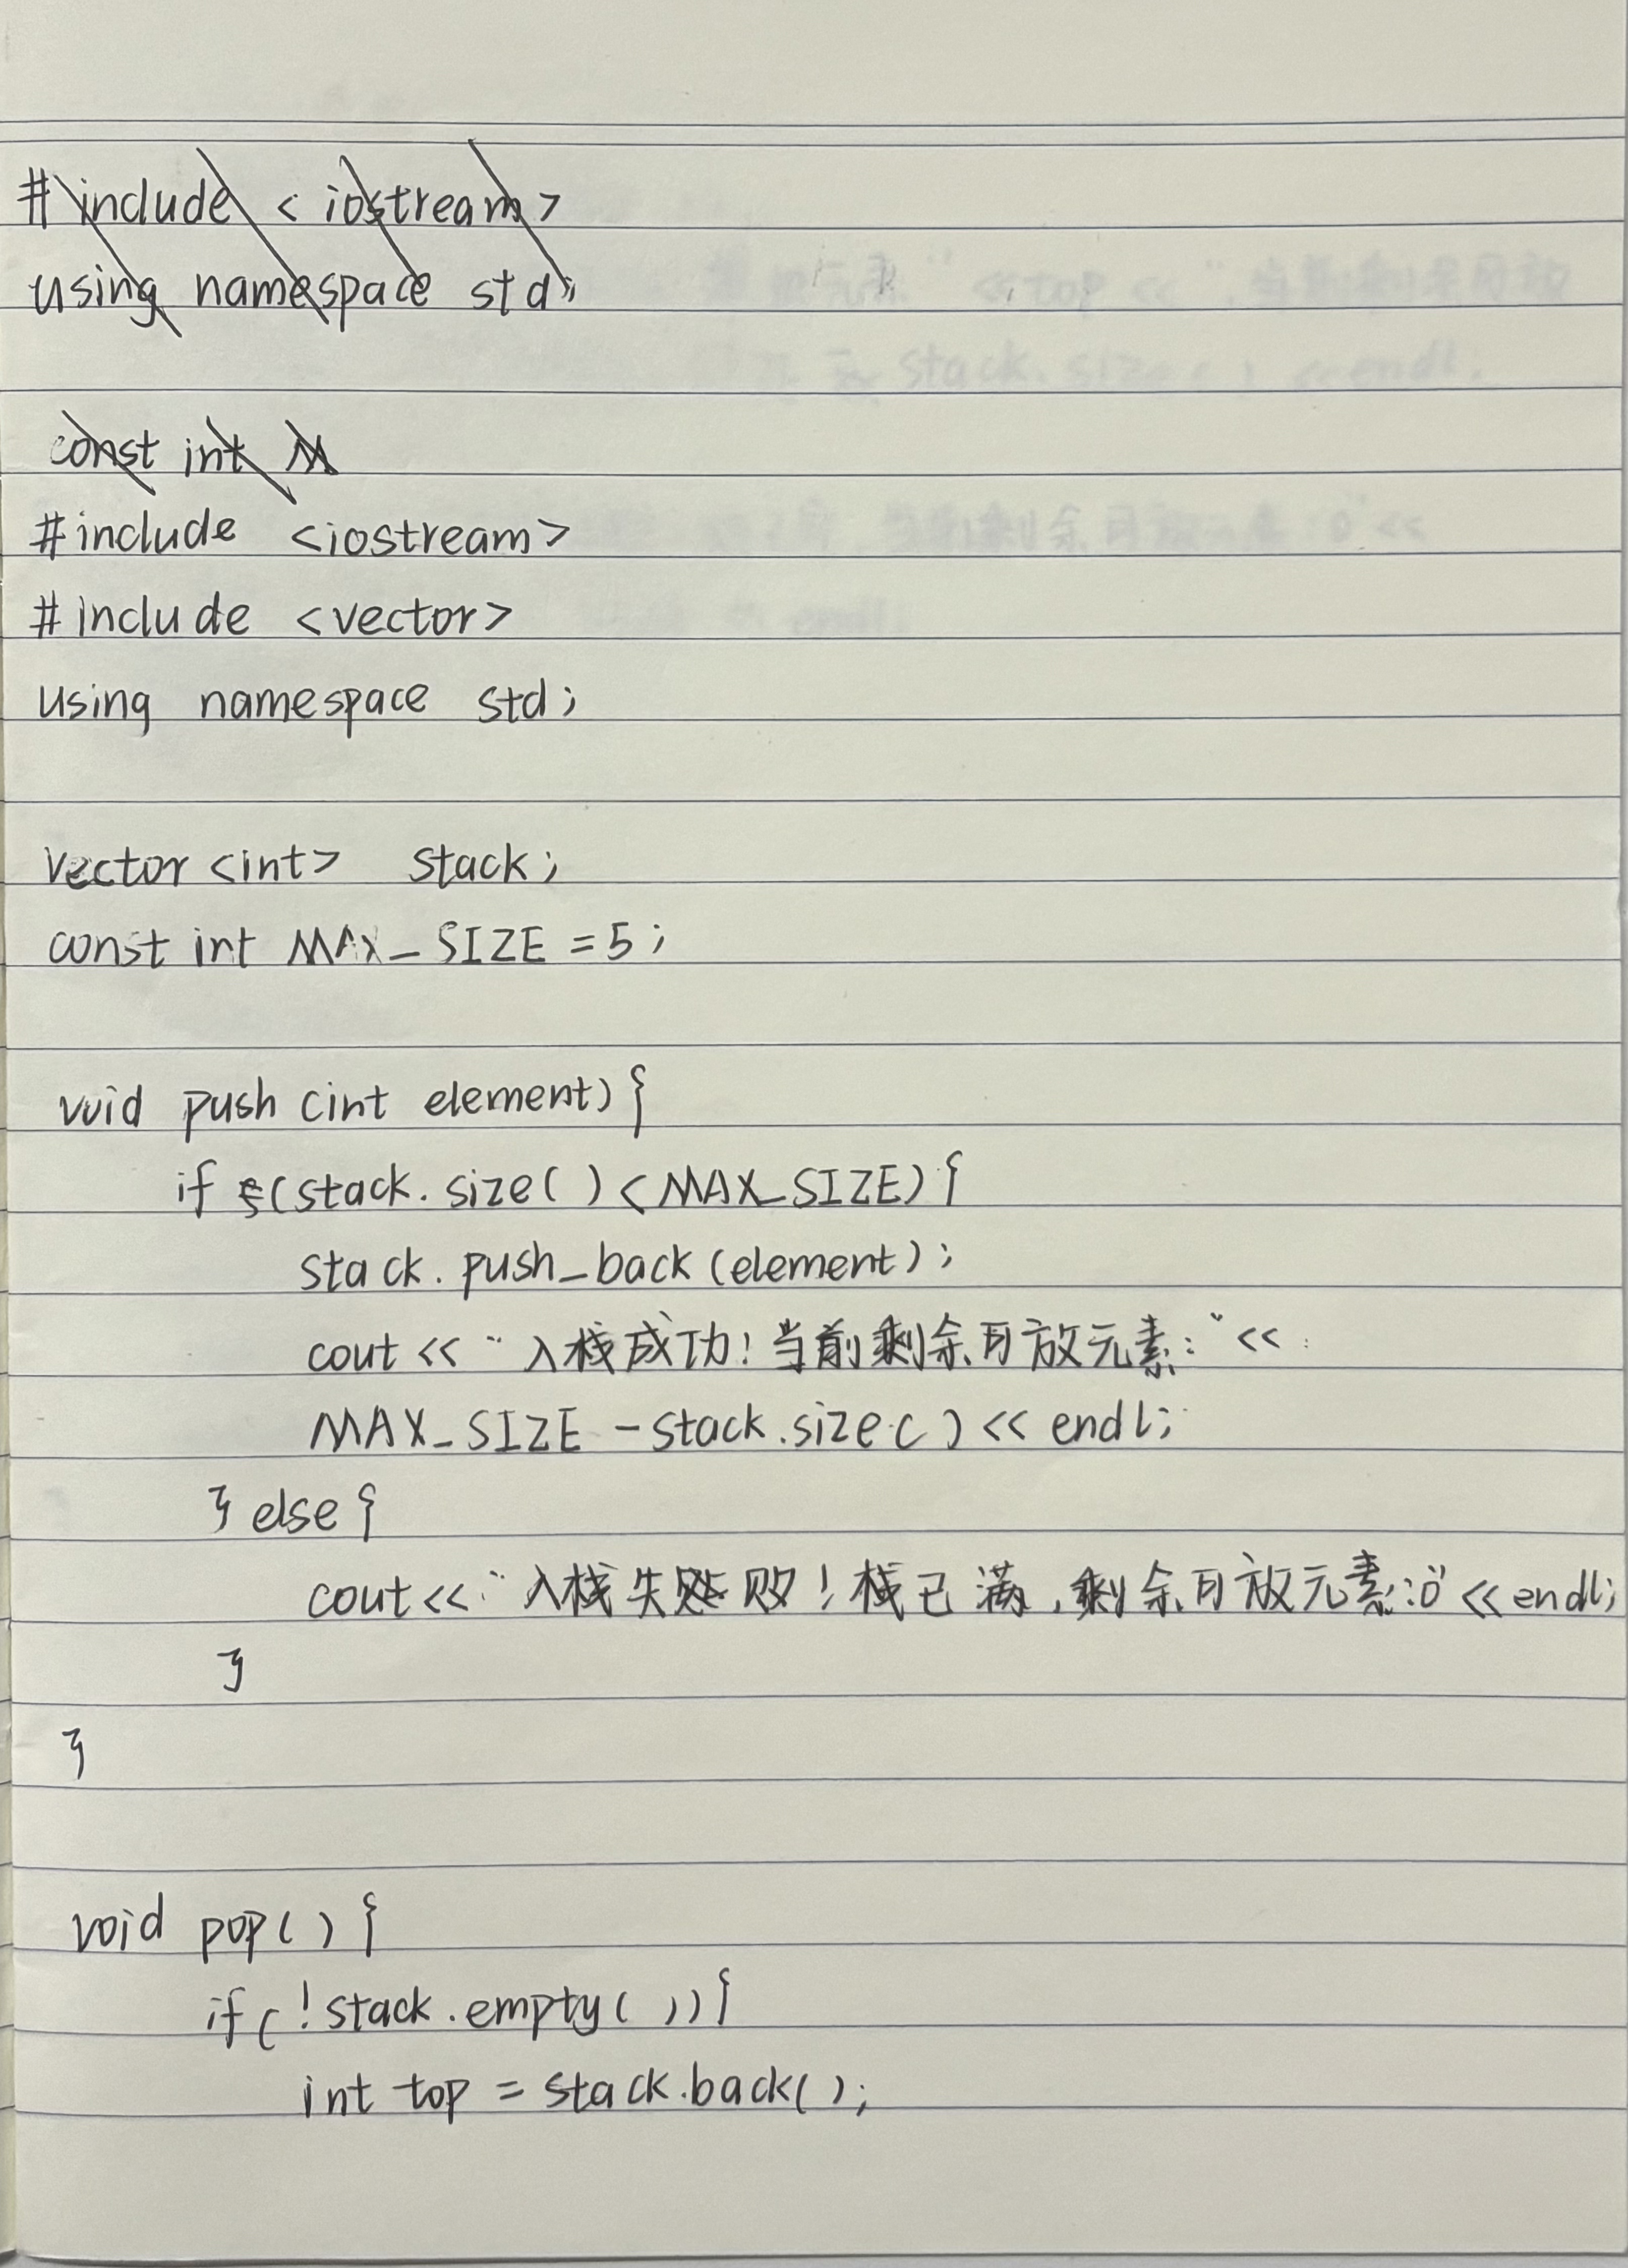 # include < iostream>
using namespace std;
const int M
#include <iostream>
#include <vector>
using namespace std;
vector <int> stack;
const int MAX_SIZE =5;
void push (int element) {
if (stack. size( ) < MAX_SIZE) {
stack. push_back (element);
cout << "入栈成功!当前剩余可放元素:" <<
MAX_SIZE - stack.size( ) << endl;
} else {
cout << "入栈失败!栈已满,剩余可放元素:0" << endl;
}
}
void pop( ) {
if( !stack.empty( )) {
int top = stack.back( );